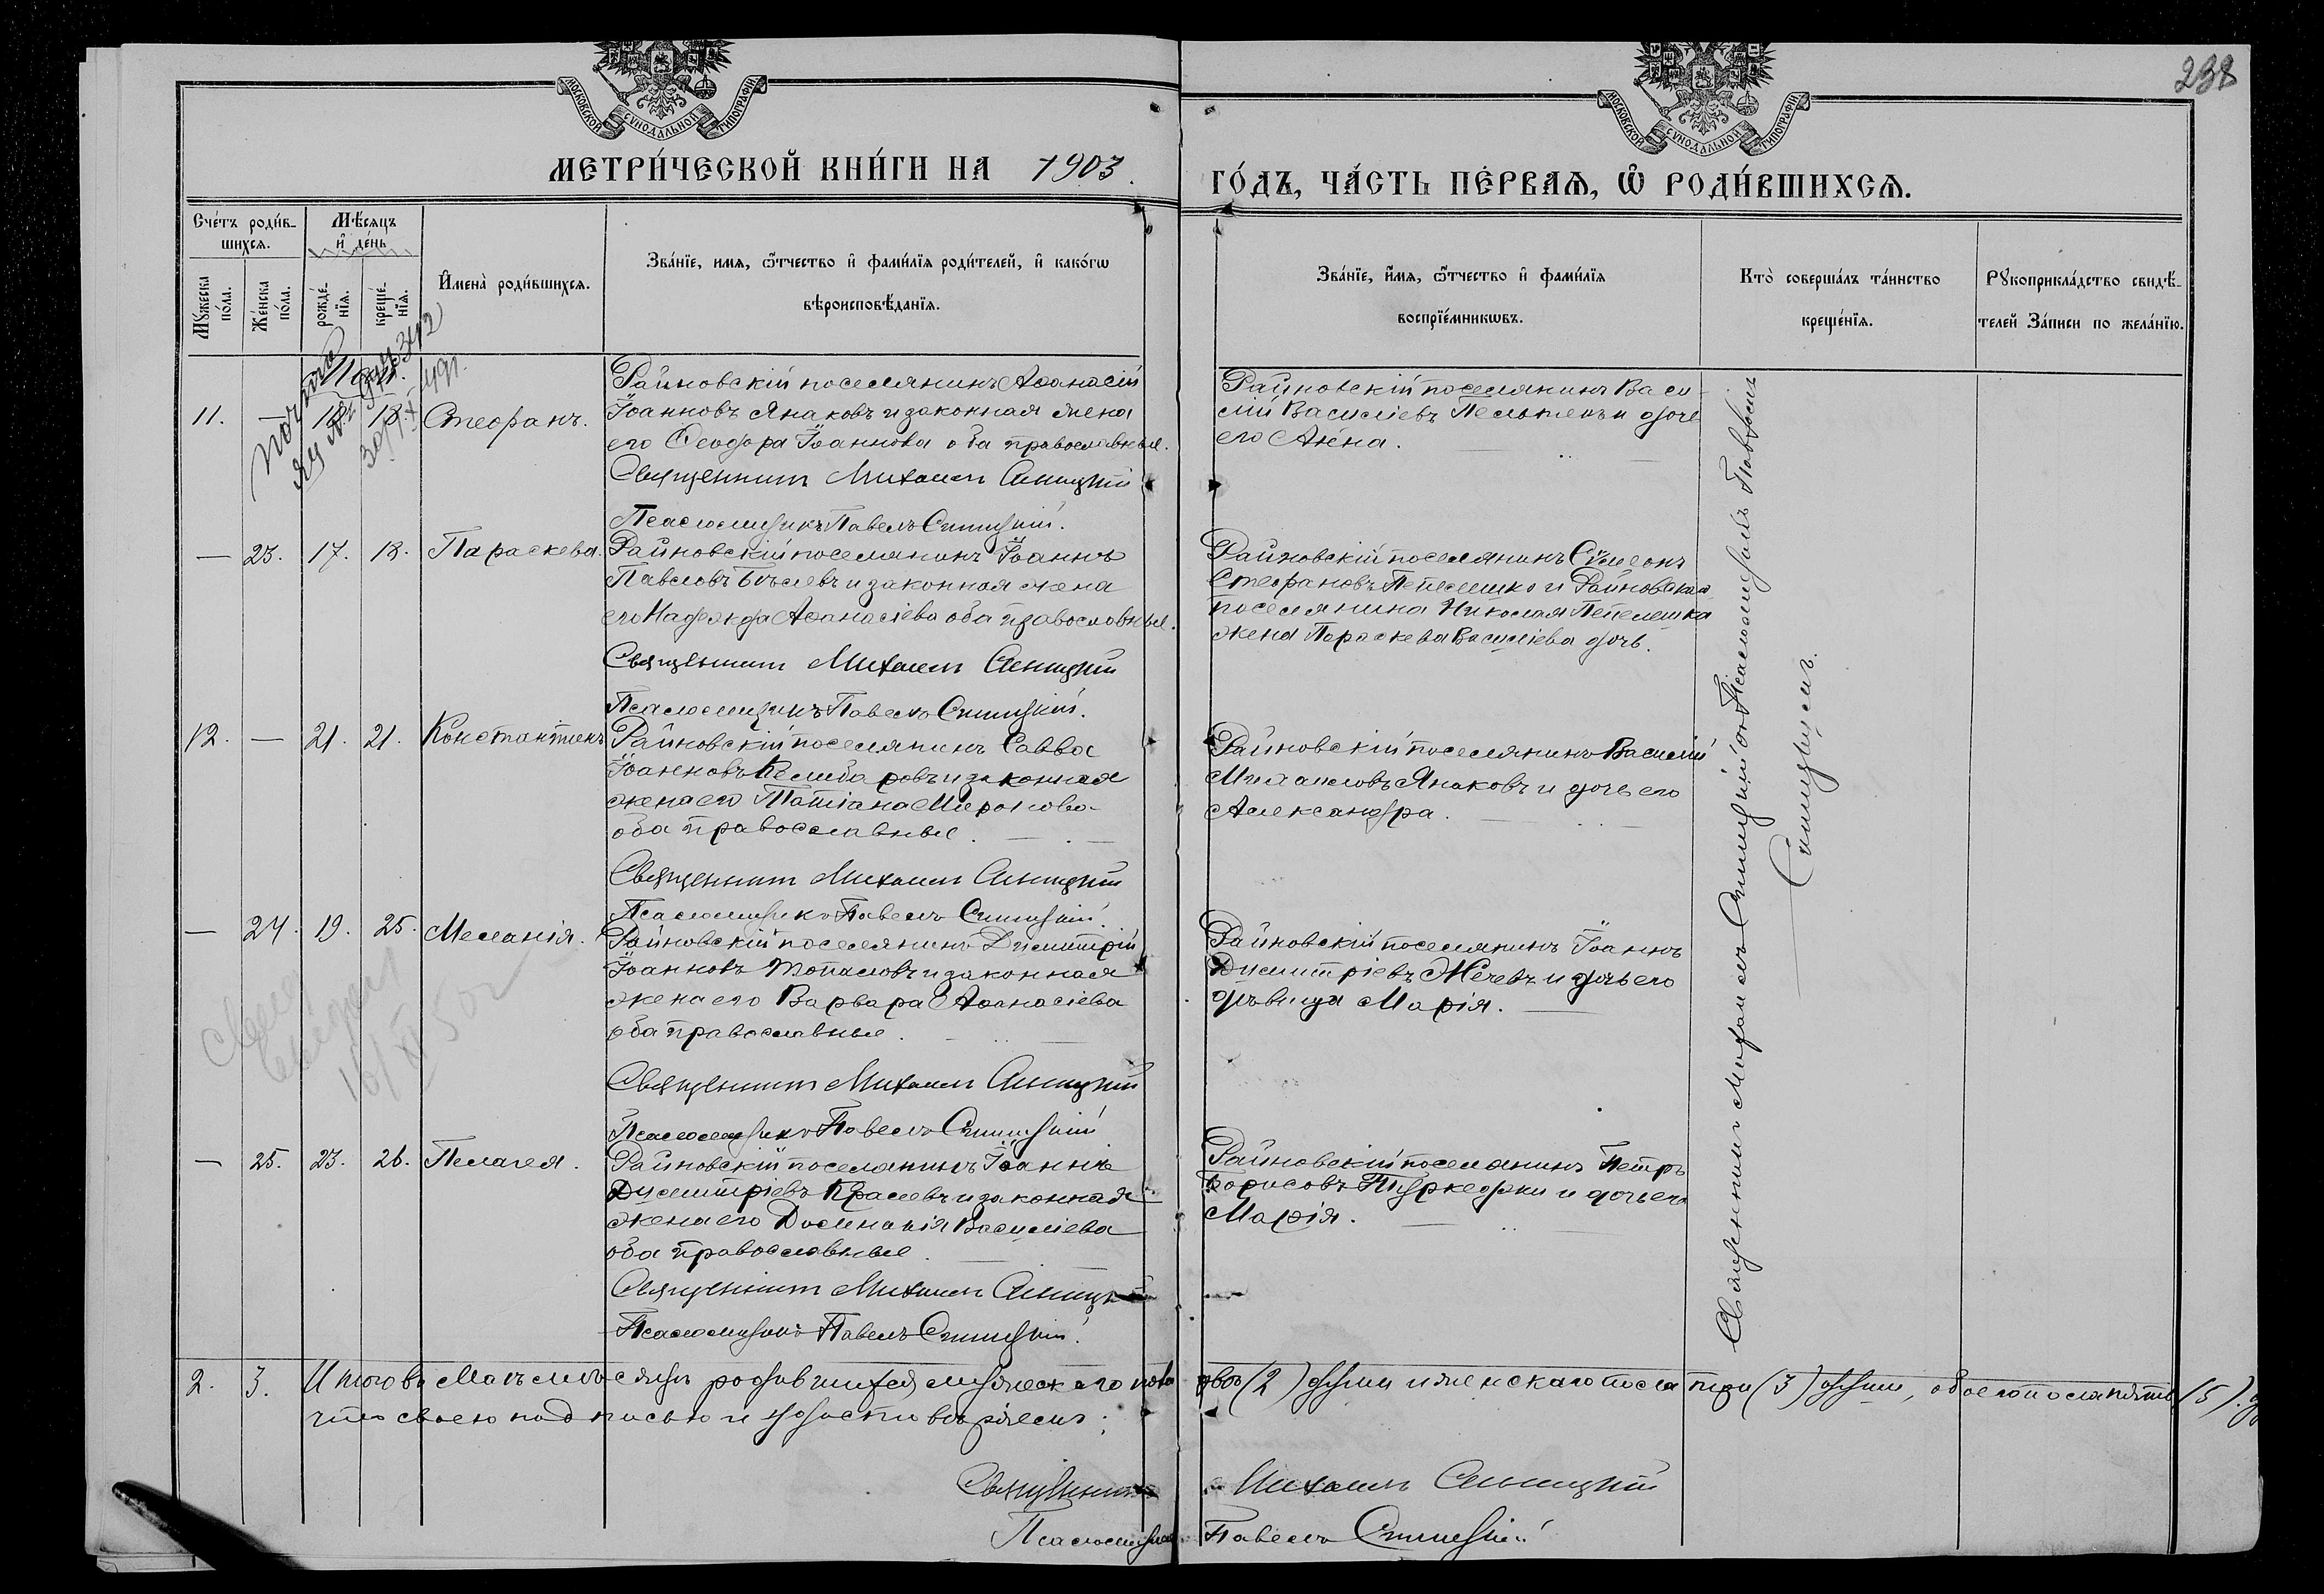 238
МОСКОВСКОЙ СУНОДАЛЬНОЙ ТИПОГРАФІИ
МОСКОВСКОЙ СУНОДАЛЬНОЙ ТИПОГРАФІИ
МЕТРИ́ЧЕСКОЙ КНИ́ГИ НА 1903.
ГО́ДЪ, ЧА́СТЬ ПЕ́РВАѦ, Ѿ РОДИ́ВШИХСѦ.
Сче́тъ роди́в-
шихсѧ.
Мѣ́сѧцъ
и҆ де́нь
Мꙋ́жеска по́ла.
Же́нска по́ла.
рожде́-нїѧ.
креще́-нїѧ.
И҆мена̀ роди́вшихсѧ.
Зва́нїе, имѧ, ѻ҆́тчество и҆ фами́лїѧ роди́телей, и҆ како́гѡ
вѣроисповѣ́данїѧ.
Зва́нїе, и҆́мѧ, ѻ҆́тчество и҆ фами́лїѧ
воспрїе́мникѡвъ.
Кто̀ соверша́лъ та́инство
креще́нїѧ.
Рꙋкоприкла́дство свидѣ́-
телей За́писи по жела́нїю.
11. — 18. 18. Стефанъ.
Райновскій поселянинъ Аѳанасій
Іоанновъ Янаковъ и законная жена
его Ѳеодора Іоаннова оба православные.
Священникъ Михаилъ Синицкій
Псаломщикъ Павелъ Синицкій.
Райновскій поселянинъ Васи-
лій Василіевъ и дочь
его Анна.
— 23. 17. 18. Параскева.
Райновскій поселянинъ Іоаннъ
Павловъ и законная жена
его Надежда Аѳанасіева оба православные.
Священникъ Михаилъ Синицкій
Псаломщикъ Павелъ Синицкій.
Райновскій поселянинъ Сѵмеонъ
Стефановъ Пепелешко и Райновскаго
поселянина Николая Пепелешка
жена Параскева Василіева дочь.
12. — 21. 21. Константинъ
Райновскій поселянинъ Савва
Іоанновъ Келибаровъ и законная
жена его Татіана Миронова
оба православные.
Священникъ Михаилъ Синицкій
Псаломщикъ Павелъ Синицкій.
Райновскій поселянинъ Василій
Михаиловъ Янаковъ и дочь его
Александра.
— 24. 19. 25. Меланія.
Райновскій поселянинъ Димитрій
Іоанновъ Топаловъ и законная
жена его Варвара Аѳанасіева
оба православные.
Священникъ Михаилъ Синицкій
Псаломщикъ Павелъ Синицкій
Райновскій поселянинъ Іоаннъ
Димитріевъ Жечевъ и дочь его
дѣвица Марія.
— 25. 23. 26. Пелагея.
Райновскій поселянинъ Іоаннъ
Димитріевъ и законная
жена его Домнакія Василіева
оба православные.
Священникъ Михаилъ Синицкій
Псаломщикъ Павелъ Синицкій.
Райновскій поселянинъ Петръ
Борисовъ и дочь его
Марія.
Священникъ Михаилъ Синицкій съ Псаломщикомъ Павломъ
Синицкимъ.
2. 3. Итого въ Маѣ мѣсяцѣ родившихся мужескаго пола двѣ (2) души и женскаго пола три (3) души, обоего пола пять (5).
что своею подписью и удостовѣряемъ:
Священникъ Михаилъ Синицкій
Псаломщикъ Павелъ Синицкій.